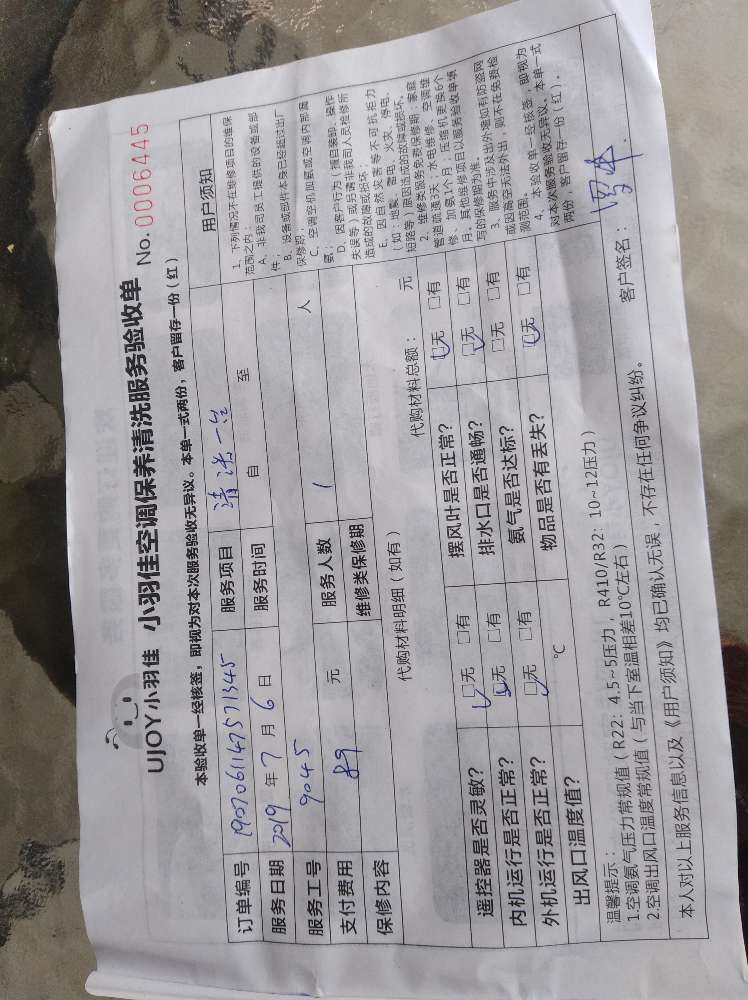 UJOY小羽佳 小羽佳空调保养清洗服务验收单 No.0006445
本验收单一经核签，即视为对本次服务验收无异议。本单一式两份，客户留存一份（红）
订单编号 1907061147571345 服务项目 清洗一台
服务日期 2019 年 7 月 6 日 服务时间 自 至
服务工号 9045 服务人数 1 人
支付费用 89 元 维修类保修期
保修内容
代购材料明细（如有） 代购材料总额： 元
遥控器是否灵敏？ □无 □有 摆风叶是否正常？ □无 □有
内机运行是否正常？ □无 □有 排水口是否通畅？ □无 □有
外机运行是否正常？ □无 □有 氨气是否达标？ □无 □有
出风口温度值？ ℃ 物品是否有丢失？ □无 □有
用户须知
1、下列情况不在维修项目的维保
范围之内：
A、非我司员工提供的设备或部
件；
B、设备或部件本身已经超过出厂
保修期；
C、空调空机加氨或空调内部漏
氨；
D、因客户行为（擅自装卸、操作
失误等）或另请非我司人员检修所
造成的故障或损坏；
E、因自然灾害等不可抗拒力
（如：地震、雷电、火灾、停电、
短路等）原因造成的故障或损坏。
2、维修类服务免费保修期：家庭
管道疏通3天；水电维修、空调维
修、加氨1个月；压缩机更换6个
月。其他维修项目以服务验收单填
写的保修期为准。
3、服务中涉及出外墙如有防盗网
或因高空无法外出，则不在免费检
测范围。
4、本验收单一经核签，即视为
对本次服务验收无异议。本单一式
两份，客户留存一份（红）。
温馨提示：
1.空调氨气压力常规值（R22：4.5~5压力，R410/R32：10~12压力）
2.空调出风口温度常规值（与当下室温相差10℃左右）
本人对以上服务信息以及《用户须知》均已确认无误，不存在任何争议纠纷。
客户签名：